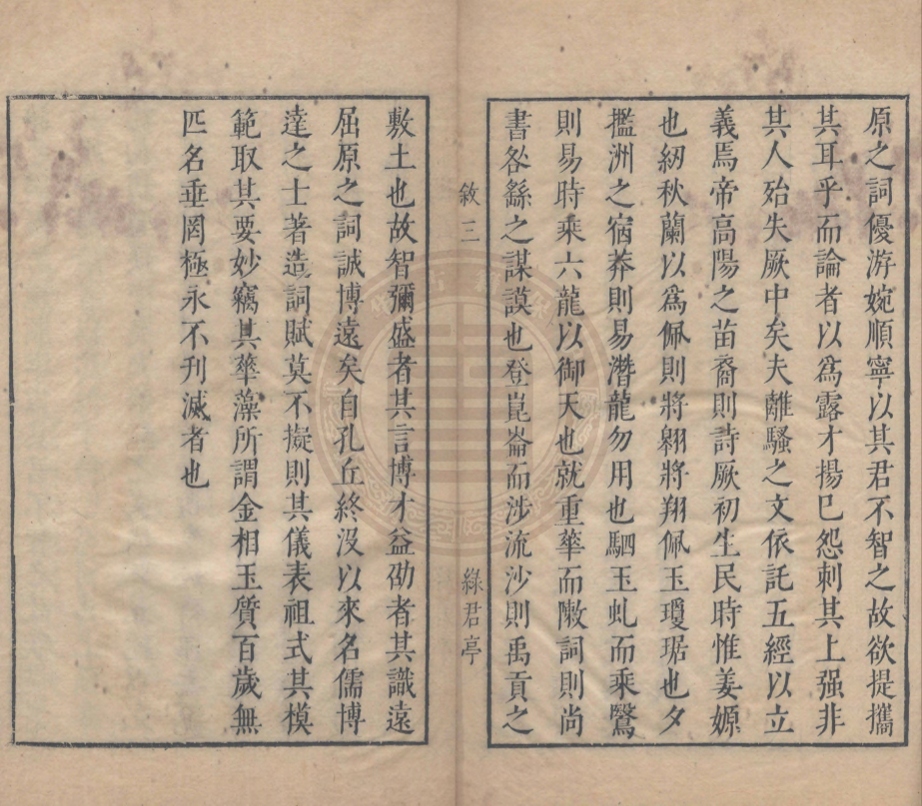 原之詞優游婉順寧以其君不智之故欲提攜
其耳乎而論者以爲露才揚已怨刺其上强非
其人殆失厥中矣夫離騷之文依託五經以立
義焉帝高陽之苗裔則詩厥初生民時惟姜嫄
也紉秋蘭以爲佩則將翱將翔佩玉瓊琚也夕
攬洲之宿莽則易潛龍勿用也駟玉虬而乘鷖
則易時乘六龍以御天也就重華而敶詞則尚
書咎繇之謀謨也登崑崙而涉流沙則禹貢之
敘三
綠君亭
敷土也故智彌盛者其言博才益劭者其識遠
屈原之詞誠博遠矣自孔丘終沒以來名儒博
達之士著造詞賦莫不擬則其儀表祖式其模
範取其要妙竊其華藻所謂金相玉質百歲無
匹名垂罔極永不刊滅者也